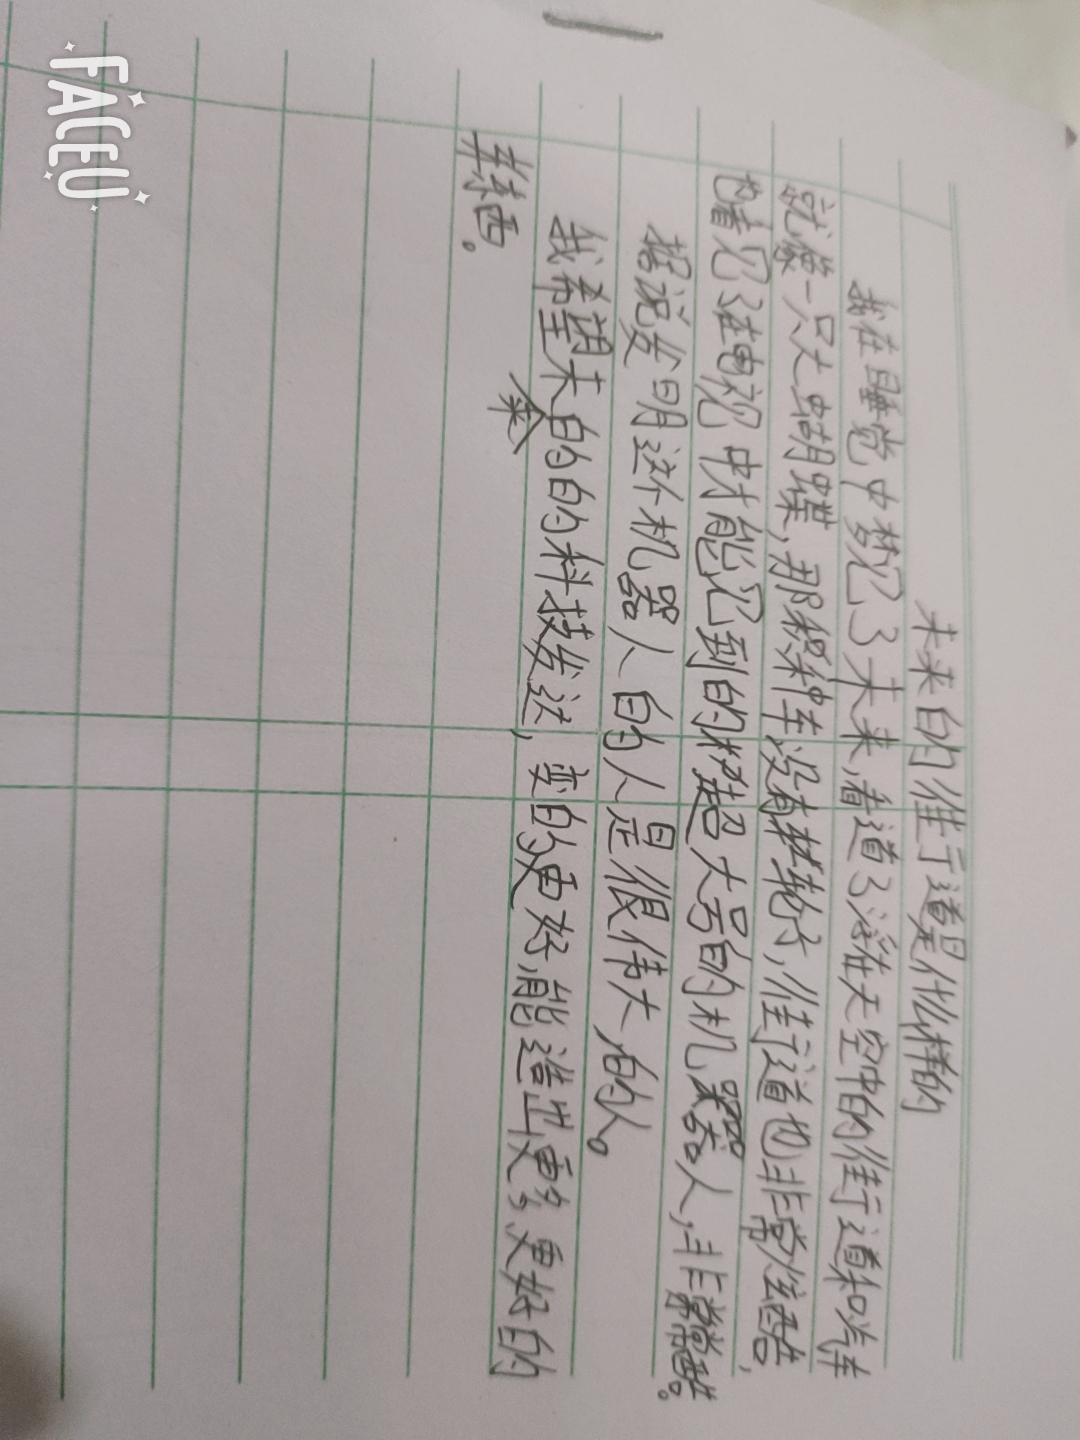 未来的街道是什么样的
我在睡觉中梦见了未来,看道了浮在天空中的街道和汽车
就像一只大蝴蝶,那种车没有轮子,街道也非常炫酷,
也看见了在电视中才能见到的超大号的机器人,非常酷。
据说发明这个机器人的人是很伟大的人。
我希望未来的的科技发达,变的更好,能造出更多更好的
东西。
FACEU